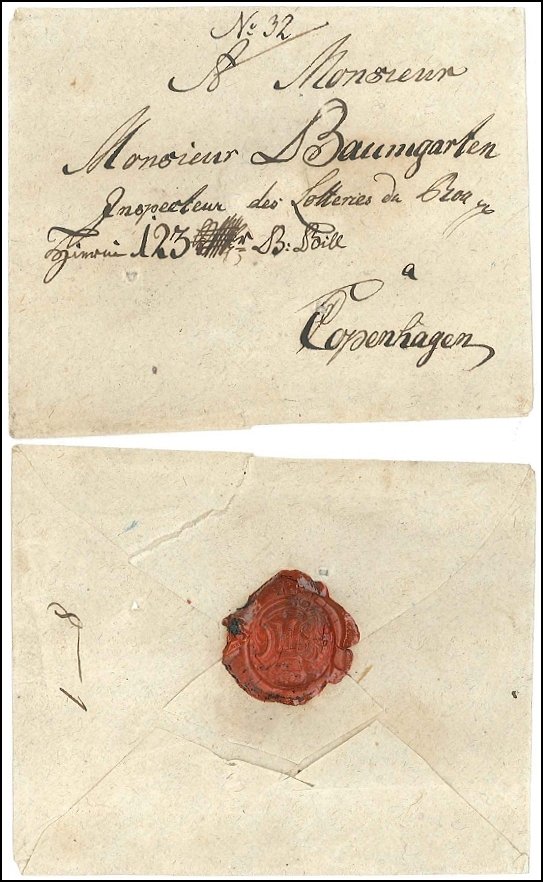 No 32
A Monsieur
Monsieur Baumgarten
Inspecteur des Lotteries du
123 B:
a
Copenhagen
8